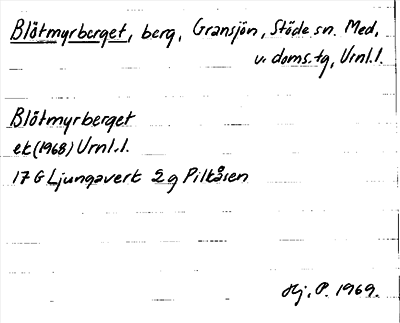 Blötmyrberget, berg, Gransjön, Stöde sn. Med,
v. doms.tg, Vrnl.l.
Blötmyrberget
ek (1968) Vrnl.l.
17 G Ljungaverk 2g Pilkåsen
Hj. P. 1969.